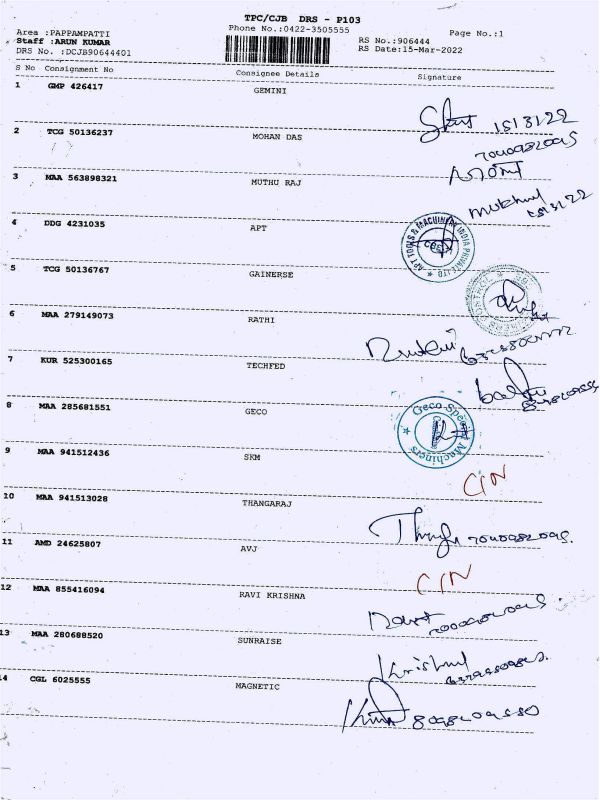 TPC/CJB DRS - P103
Area :PAPPAMPATTI Phone No.:0422-3505555 Page No.:1
Staff :ARUN KUMAR RS No.:906444
DRS No. :DCJB90644401 RS Date:15-Mar-2022
S No Consignment No Consignee Details Signature
1 GMP 426417 GEMINI
15/3/22
2 TCG 50136237 MOHAN DAS
3 MAA 563898321 MUTHU RAJ
15/3/22
4 DDG 4231035 APT
APT TOOLS & MACHINERY INDIA PRIVATE LTD
5 TCG 50136767 GAINERSE
6 MAA 279149073 RATHI
7 KUR 525300165 TECHFED
8 MAA 285681551 GECO
Geco Special Machiners
9 MAA 941512436 SKM
C/N
10 MAA 941513028 THANGARAJ
11 AMD 24625807 AVJ
C/N
12 MAA 855416094 RAVI KRISHNA
13 MAA 280688520 SUNRAISE
14 CGL 6025555 MAGNETIC